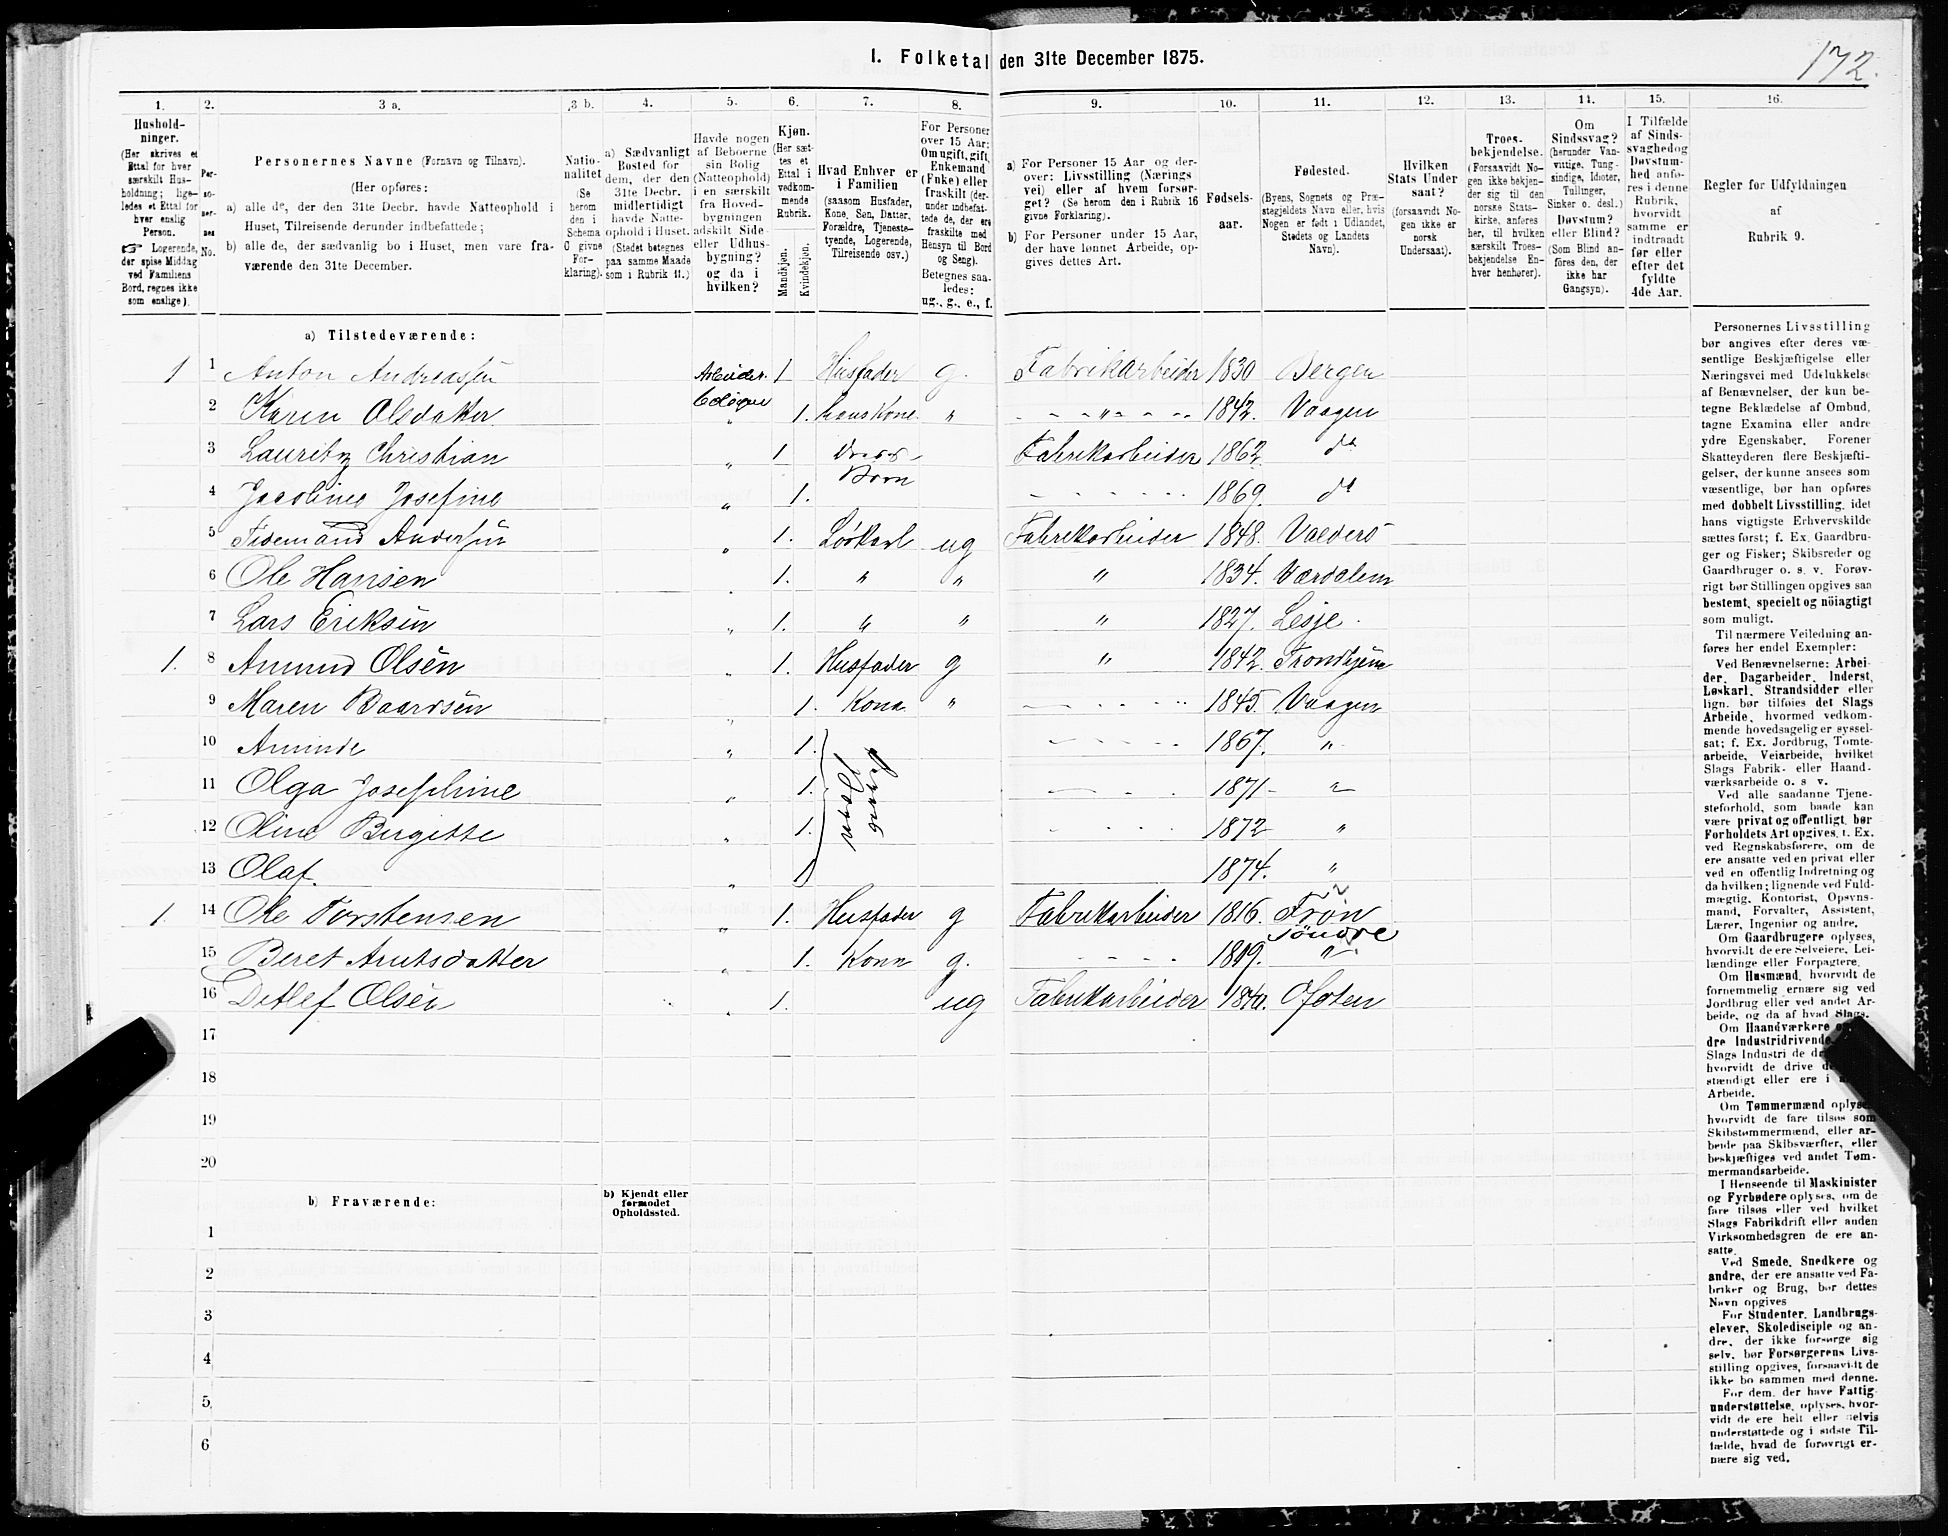 I. Folketal den 31te December 1875.
172.
1. 2. 3 a. 3 b. 4. 5. 6. 7. 8. 9. 10. 11. 12. 13. 14. 15. 16.
Hushold-
ninger.
(Her skrives et
Ettal for hver
særskilt Hus-
holdning; lige-
ledes et Ettal for
hver enslig
Person.
☞ Logerende,
der spise Middag
ved Familiens
Bord, regnes ikke
som enslige).
Per-
so-
ner-
nes
No.
Personernes Navne (Fornavn og Tilnavn).
(Her opføres:
a) alle de, der den 31te Decbr. havde Natteophold i
Huset, Tilreisende derunder indbefattede;
b) alle de, der sædvanlig bo i Huset, men vare fra-
værende den 31te December.
Natio-
nalitet
(Se
herom
den i
Schema
C givne
For-
klaring).
a) Sædvanligt
Bosted for
dem, der den
31te Decbr.
midlertidigt
havde Natte-
ophold i Huset.
(Stedet betegnes
paa samme Maade
som i Rubrik 11.)
Havde nogen
af Beboerne
sin Bolig
(Natteophold)
i en særskilt
fra Hoved-
bygningen
adskilt Side-
eller Udhus-
bygning?
og da i
hvilken?
Kjøn.
(Her sæt-
tes et
Ettal i
vedkom-
mende
Rubrik.
Mandkjøn.
Kvindekjøn.
Hvad Enhver er
i Familien
(saasom Husfader,
Kone, Søn, Datter,
Forældre, Tjeneste-
tyende, Logerende,
Tilreisende osv.)
For Personer
over 15 Aar:
Om ugift, gift,
Enkemand
(Enke) eller
fraskilt (der-
under indbefat-
tede de, der ere
fraskilte med
Hensyn til Bord
og Seng).
Betegnes saa-
ledes:
ug., g., e., f.
a) For Personer 15 Aar og der-
over: Livsstilling (Nærings
vei) eller af hvem forsør-
get? (Se herom den i Rubrik 16
givne Forklaring).
b) For Personer under 15 Aar,
der have lønnet Arbeide, op-
gives dettes Art.
Fødsels-
aar.
Fødested.
(Byens, Sognets og Præ-
stegjeldets Navn eller, hvis
Nogen er født i Udlandet,
Stedets og Landets
Navn).
Hvilken
Stats Under
saat?
(forsaavidt No-
gen ikke er
norsk
Undersaat).
Troes-
bekjendelse.
(Forsaavidt No-
gen ikke bekjen-
der sig til den
norske Stats-
kirke, anføres
her, til hvilken
særskilt Troes-
bekjendelse En-
hver henhører).
Om
Sindssvag?
(herunder Van-
vittige, Tung-
sindige, Idioter,
Tullinger,
Sinker o. desl.)
Døvstum?
eller Blind?
(Som Blind an-
føres den, der
ikke har
Gangsyn).
I Tilfælde
af Sinds-
svaghed og
Døvstum-
hed anfø-
res i denne
Rubrik,
hvorvidt
samme er
indtraadt
før eller
efter det
fyldte
4de Aar.
Regler for Udfyldningen
af
Rubrik 9.
a) Tilstedeværende:
1 1 Anton Andreassen Arbeider- 1 Husfader g. Fabrikarbeider 1830 Bergen
2 Karen Olsdatter 〃 1. Hans Kone 〃 〃 1842. Vaagen
3 Lauritz Christian 〃 1 Fabrikarbeider 1862. do
Børn
4 Jacobine Josefine 〃 1. 1869. do
5 Tidemand Andersen 〃 1. Løskarl ug Fabrikarbeider 1848. Valderö
6 Ole Hansen 1. 〃 〃 〃 1834. Værdalem
7 Lars Eriksen 〃 1. 〃 〃 〃 1827. Lesje.
1. 8 Amund Olsen 〃 1. Husfader g 〃 1842. Trondhjem
9 Maren Baardsen 〃 1. Kone 〃 1845. Vaagen
10 Aminde 〃 1. 1867. 〃
11 Olga Josephine 〃 1. 1871 〃
12 Oline Birgitte 〃 1. 1872 〃
13 Olaf. 〃 1 1874. 〃
1. 14 Ole Torstensen 〃 1. Husfader g Fabrikarbeider 1816. Fron
söndre
15 Beret Arntsdatter 〃 1. Kone g. 1819. 〃
16 Detlef Olsen 〃 1. ug Fabrikarbeider 1840. Ofoten
17
18
19
20
b) Fraværende:
b) Kjendt eller
formodet
Opholdssted.
1
2
3
4
5
6
Personernes Livsstilling
bør angives efter deres væ-
sentlige Beskjæftigelse eller
Næringsvei med Udelukkelse
af Benævnelser, der kun be-
tegne Beklædelse af Ombud,
tagne Examina eller andre
ydre Egenskaber. Forener
Skatteyderen flere Beskjæfti-
gelser, der kunne ansees som
væsentlige, bør han opføres
med dobbelt Livsstilling, idet
hans vigtigste Erhvervskilde
sættes først; f. Ex. Gaardbru-
ger og Fisker; Skibsreder og
Gaardbruger o. s. v. Forøv-
rigt bør Stillingen opgives saa
bestemt, specielt og nöiagtigt
som muligt.
Til nærmere Veiledning an-
føres her endel Exempler:
Ved Benævnelserne: Arbei-
der, Dagarbeider, Inderst,
Løskarl, Strandsidder eller
lign. bør tilføies det Slags
Arbeide, hvormed vedkom-
mende hovedsagelig er syssel-
sat; f. Ex. Jordbrug, Tomte-
arbeide, Veiarbeide, hvilket
Slags Fabrik- eller Haand-
værksarbeide o. s v.
Ved alle saadanne Tjene-
steforhold, som baade kan
være privat og offentligt, bør
Forholdets Art opgives, t. Ex.
ved Regnskabsførere, om de
ere ansatte ved en privat eller
ved en offentlig Indretning og
da hvilken; lignende ved Fuld-
mægtig, Kontorist, Opsyns-
mand, Forvalter, Assistent,
Lærer, Ingeniør og andre.
Om Gaardbrugere oplyses,
hvorvidt de ere Selveiere, Lei-
lændinge eller Forpagtere.
Om Husmænd, hvorvidt de
fornemmelig ernære sig ved
Jordbrug eller ved andet Ar-
beide, og da af hvad Slags.
Om Haandværkere
dre Industridrivende
Slags Industri de
hvorvidt de drive
stændigt eller ere i
Arbeide.
Om Tømmermænd oplyses
hvorvidt de fare tilsøs som
Skibstømmermænd, eller ar-
beide paa Skibsværfter, eller
beskjæftiges ved andet Tøm-
mermandsarbeide.
I Henseende til Maskinister
og Fyrbødere oplyses, om de
fare tilsøs eller ved hvilket
Slags Fabrikdrift eller anden
Virksomhedsgren de ere an-
satte.
Ved Smede, Snedkere og
andre, der ere ansatte ved Fa-
briker og Brug, bør dettes
Navn opgives
For Studenter, Landbrugs-
elever, Skoledisciple og an-
dre, der ikke forsørge sig
selv, bør Forsørgerens Livs-
stilling opgives, forsaavidt de
ikke bo sammen med denne.
For dem, der have Fattig-
understøttelse, oplyses, hvor-
vidt de ere helt eller delvis
understøttede og i sidste Til-
fælde, hvad de forøvrigt er-
nære sig ved.